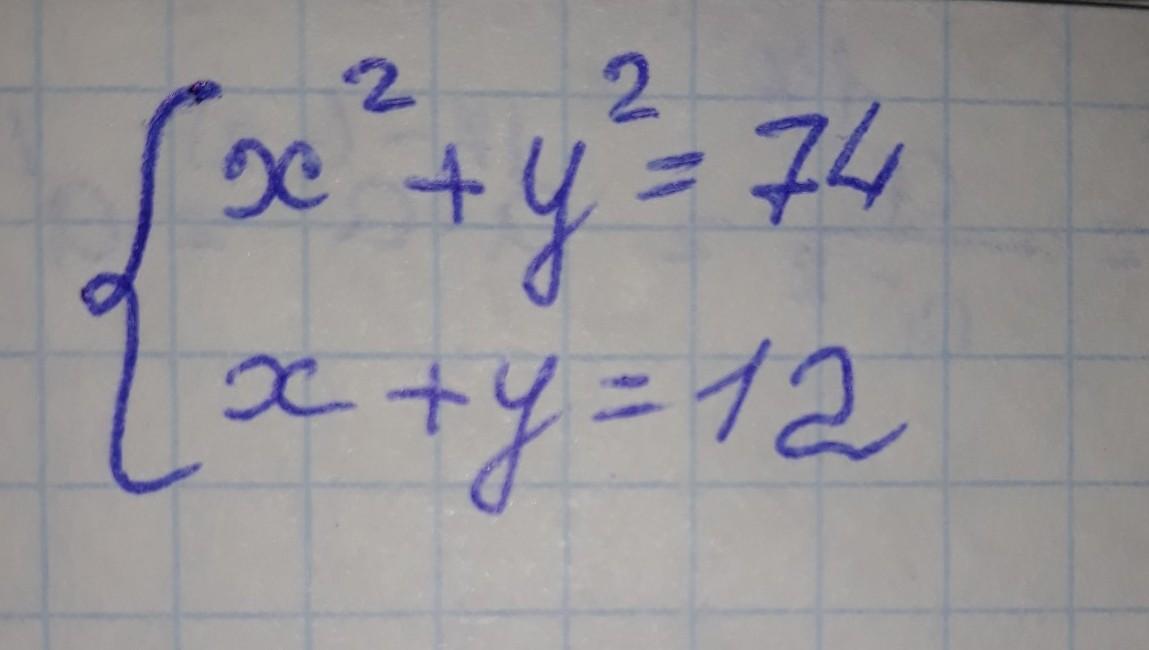 x² + y² = 74
x + y = 12